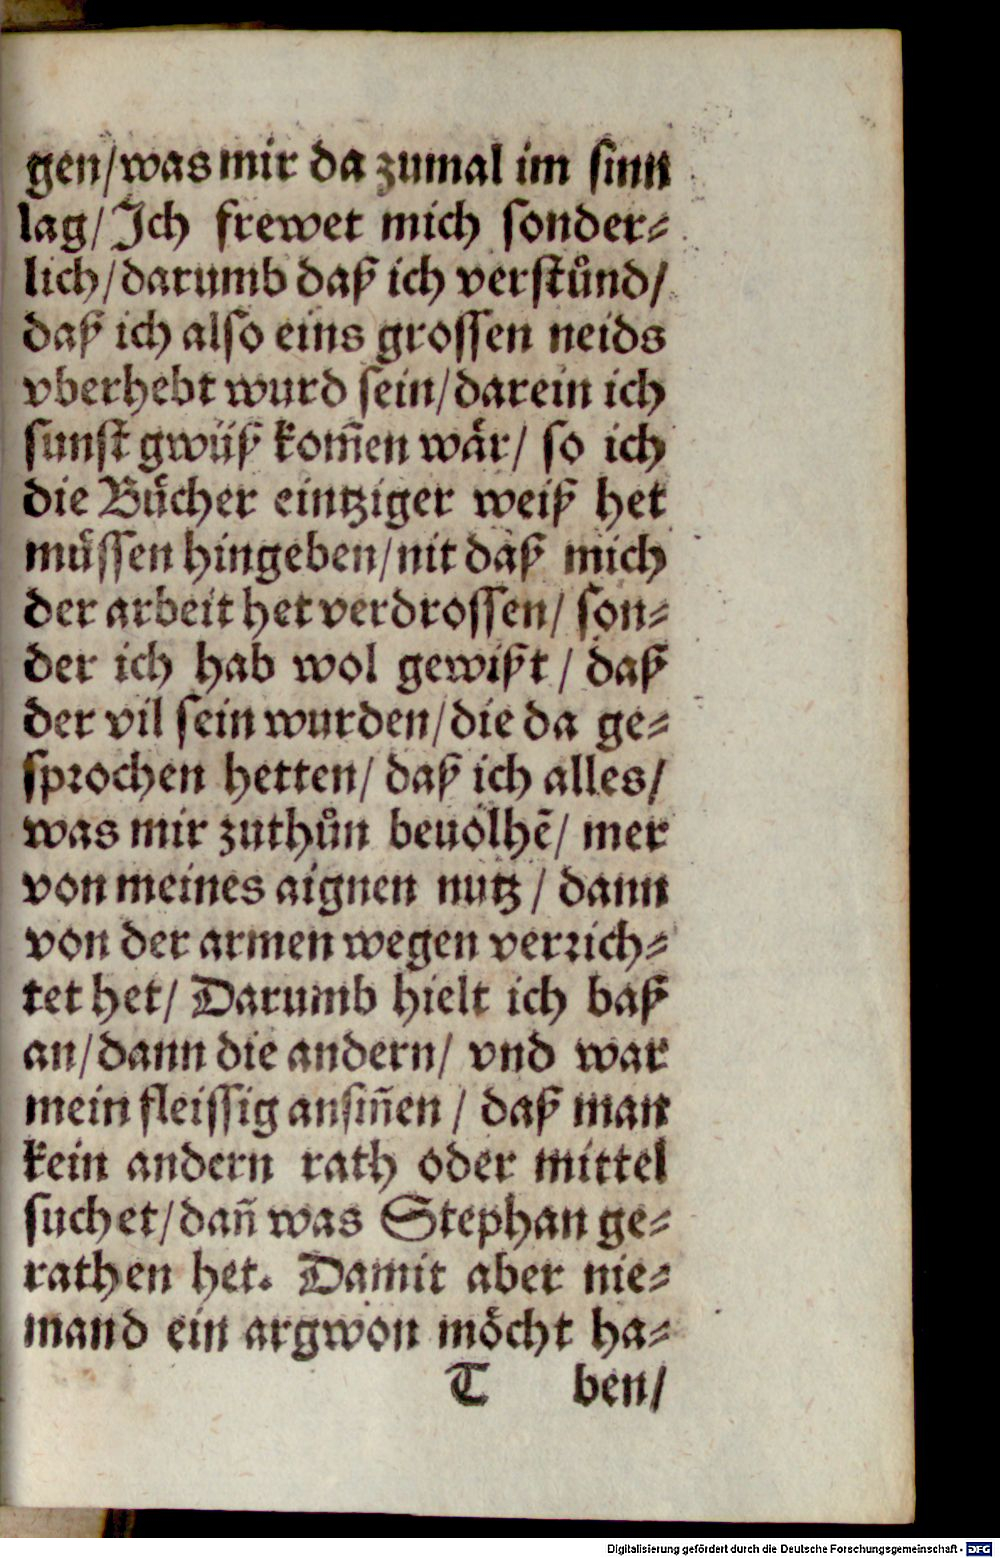 gen/was mir da zumal im sinn
lag/Jch frewet mich sonder⸗
lich/darumb daß ich verstůnd/
daß ich also eins grossen neids
vberhebt wurd sein/darein ich
sunst gwüß kom̃en wåR/ so ich
die Bůcher eintziger weiß het
můssen hingeben/nit daß mich
der arbeit het verdrossen/ son⸗
der ich hab wol gewißt/ daß
der vil sein wurden/die da ge⸗
sprochen hetten/ daß ich alles/
was mir zuthůn beuolhẽ/ mer
von meines aignen nutz/ dann
von der armen wegen verrich⸗
tet het/ Darumb hielt ich baß
an/dann die andern/ vnd war
mein fleissig ansiñen/ daß man
kein andern rath oder mittel
suchet/dañ was Stephan ge⸗
rathen het. Damit aber nie⸗
mand ein argwon möcht ha⸗
T ben/
Digitalisierung gefördert durch die Deutsche Forschungsgemeinschaft - DFG